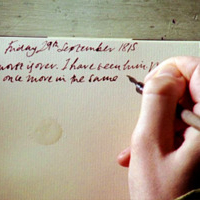 Friday 29th September 1815
is over. I have been him
once more in the same